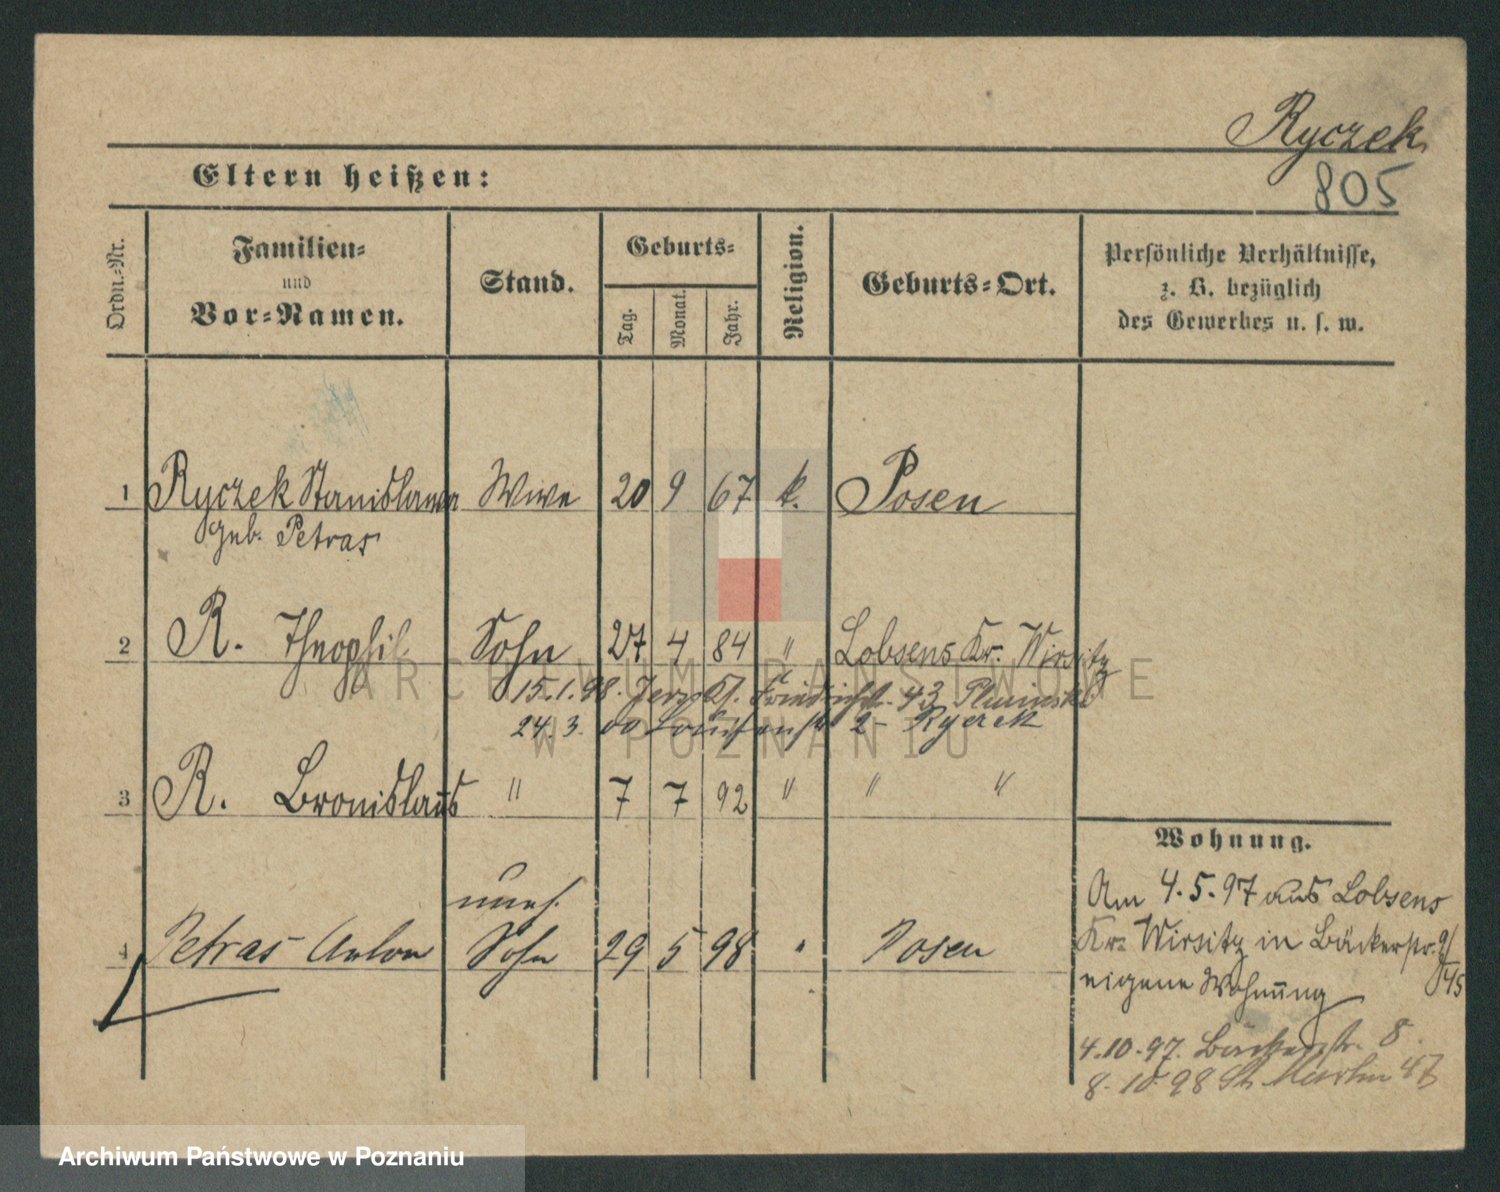 Ryczek
805
Eltern heißen:
Ordn.-Nr.
Familien-
und
Vor-Namen.
Stand.
Geburts-
Tag.
Monat.
Jahr.
Religion.
Geburts-Ort.
Persönliche Verhältnisse,
z. B. bezüglich
des Gewerbes u. s. w.
1 Ryczek Stanislawa Wwe 20 9 67 k. Posen
geb. Petras
2 R. Theophil Sohn 27 4 84 " Lobsens Kr. Wirsitz
15.1.98. 43
24.3.00 2 Ryczek
3 R. Bronislaus " 7 7 92 " " "
Wohnung.
Am 4.5.97 aus Lobsens
Kr. Wirsitz in Bäckerstr. 9/
45
eigene Wohnung
4.10.97. Bäckerstr. 8.
8.10.98 St. Martin 47
uneh.
4 Petras Anton Sohn 29 5 98 " Posen
ARCHIWUM PAŃSTWOWE
W POZNANIU
Archiwum Państwowe w Poznaniu